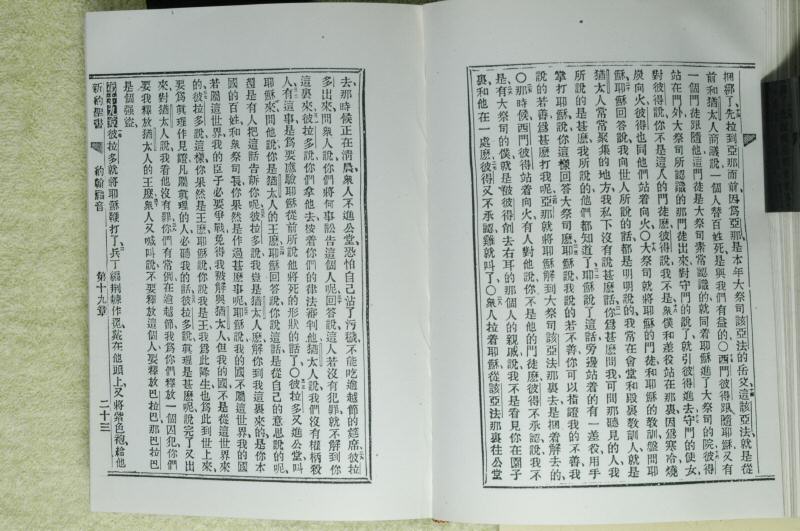 捆綁了、先拉到亞那面前、因爲亞那是本年大祭司該亞法的岳父、這該亞法就是從
前和猶太人商議說、一個人替百姓死、是與我們有益的、〇西門彼得跟隨耶穌、又有
一個門徒跟隨他、這門徒是大祭司素常認識的、就同着耶穌進了大祭司的院、彼得
站在門外、大祭司所認識的那門徒出來、對守門的說了、就引彼得進去、守門的使女
對彼得說、你不是這人的門徒麽、彼得說、我不是、衆僕和差役站在那裏、因爲寒冷燒
炭向火、彼得也同他們站着向火、〇大祭司就將耶穌的門徒和耶穌的教訓盤問耶
穌、耶穌回答說、我向世人所說的話、都是明明說的、我常在會堂和殿裏教訓人、就是
猶太人常常聚集的地方、我私下沒有說甚麽話、你爲甚麽問我、可問那聽見的人、我
所說的是甚麽、我所說的他們都知道了、耶穌說了這話、旁邊站着的有一差役用手
掌打耶穌、說、你這樣回答大祭司麽、耶穌說、我說的若不善、你可以指證我的不善、我
說的若善、爲甚麽打我呢、亞那就將耶穌解到大祭司該亞法那裏去、是捆着解去的、
〇那時候西門彼得站着向火、有人對他說、你不是他的門徒麽、彼得不承認、說、我不
是、有大祭司的僕、就是彼得削去右耳的那個人的親戚、說、我不是看見你在園子
裏和他在一處麽、彼得又不承認、雞就叫了、〇衆人拉着耶穌、從該亞法那裏往公堂
去、那時候正在清晨、衆人不進公堂、恐怕自己沾了污穢、不能吃逾越節的筵席、彼拉
多出來問衆人說、你們將何事訟告這個人呢、回答說、這人若沒有罪、就不解到你
這裏來、彼拉多說、你們拿他去、按着你們的律法審判他、猶太人說、我們沒有權柄殺
人、有這事是爲要應驗耶穌從前所說他將死的形狀的話了、〇彼拉多又進公堂、叫
耶穌來、問他說、你是猶太人的王麽、耶穌回答說、你說這話是從自己的意思說的呢、
還是有人把這話告訴你呢、彼拉多說、我豈是猶太人麽、解你到我這裏來的、是你本
國的百姓、和衆祭司長、你果然是作過甚麽事呢、耶穌說、我的國不屬這世界、我的國
若屬這世界、我的臣子必要爭戰、免得我被解與猶太人、但我的國不是從這世界來
的、彼拉多說、這樣、你果然是王麽、耶穌說、你說我是王、我爲此降生、也爲此到世上來、
要爲眞理作見證、凡屬眞理的人、必聽我的話、彼拉多說、眞理是甚麽呢、說完了、又出
來對猶太人說、我看他沒有罪、你們有常例、在逾越節我爲你們釋放一個囚犯、你們
要我釋放猶太人的王麽、衆人又喊叫說、不要釋放這個人、要釋放巴拉巴、那巴拉巴
是個強盜、
彼拉多就將耶穌鞭打了、兵丁編荆棘作冕、戴在他頭上、又將紫色袍給他
新約聖書 約翰福音 第十九章 二十三